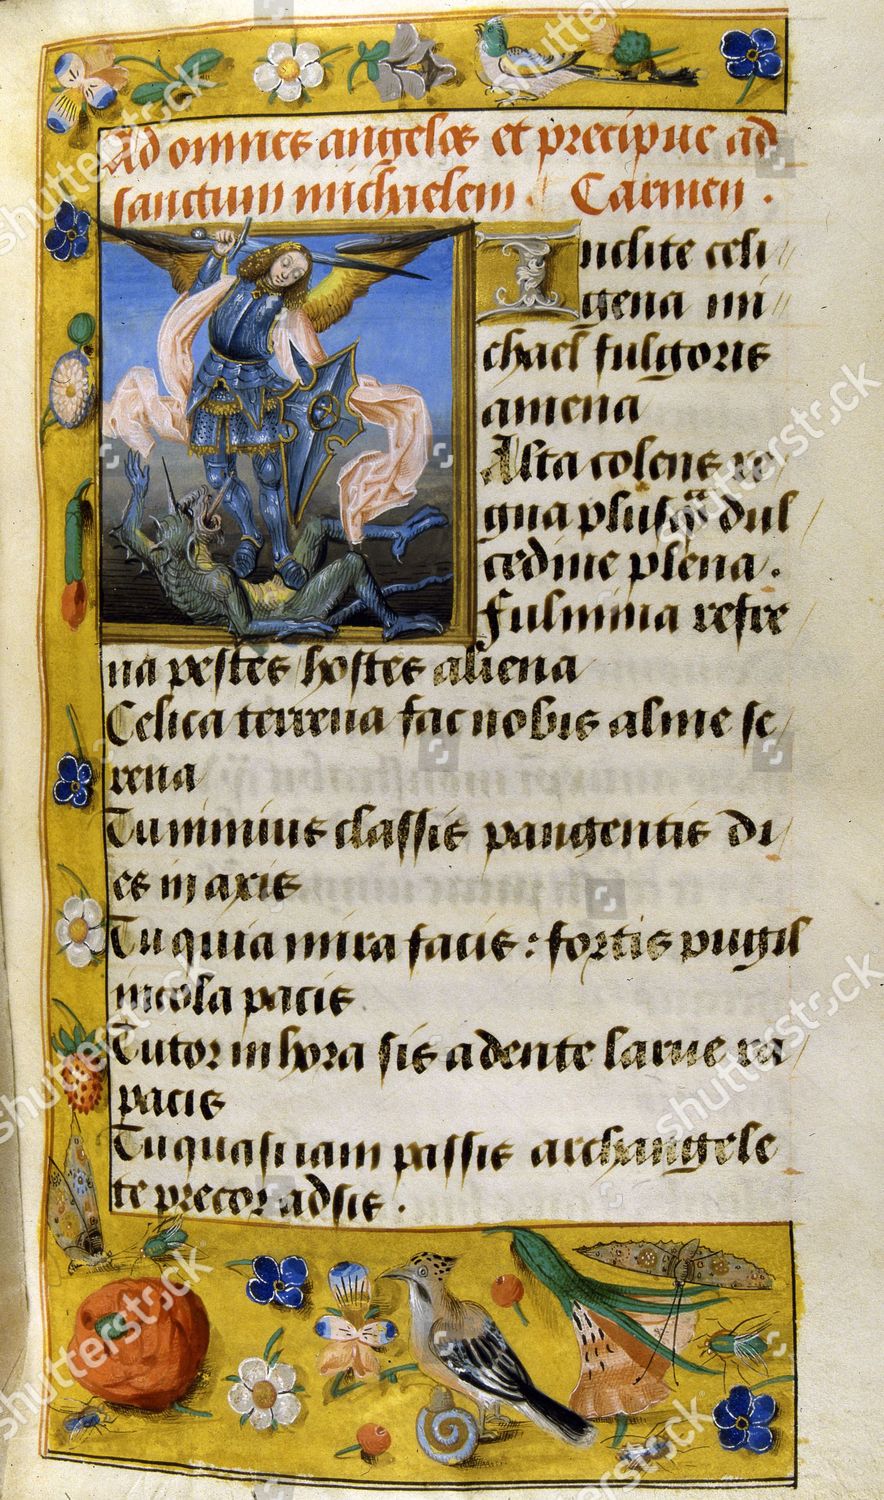 Ad omnes angelos et precipue ad
sanctum michaelem. Carmen.
Inclite celi
gena mi
chael fulgoris
amena
Asta colens re
gna plusq̄ȝ dul
cedine plena.
Fulmina refre
na pestes hostes aliena
Celica terrena fac nobis alme se
rena
Tu nimius classis pangentis di
es in axis
Tu quia mira facis: fortis pugil
incola pacis
Tutor in hora sis a dente larue ra
pacis
Tu quasi iam passis archangele
te precor adsis.
shutterstock